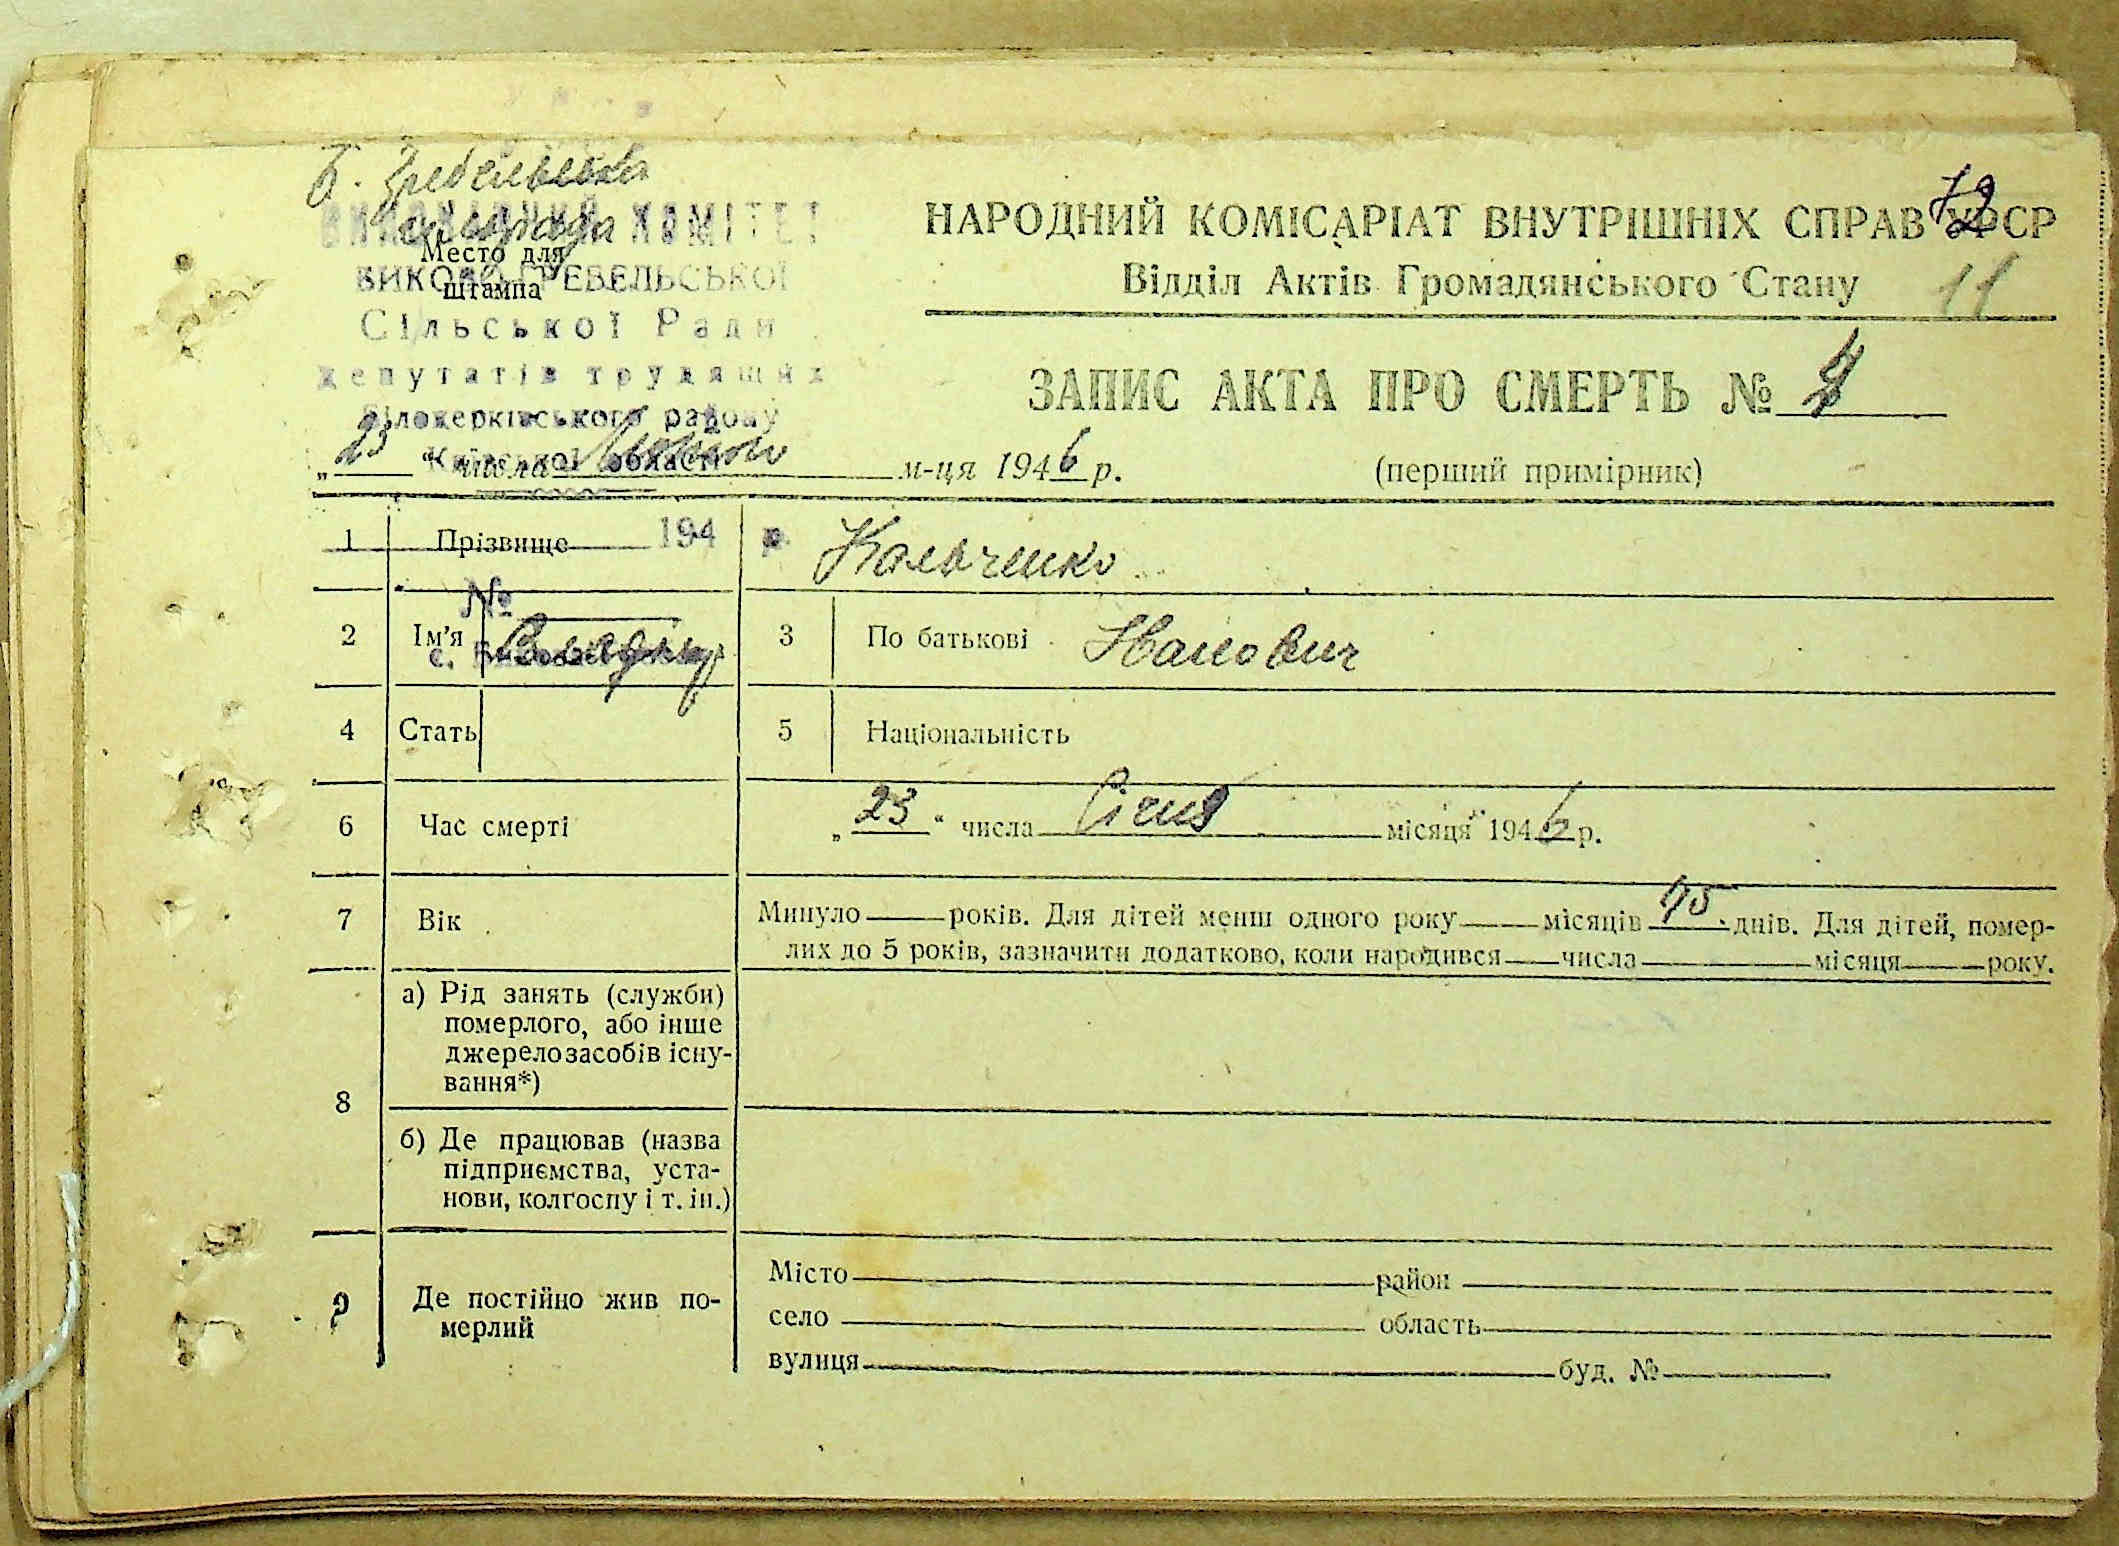 Б. Гребельська
сільрада
ВИКОНАВЧИЙ КОМІТЕТ
Место для
штампа
БИКОВО-ГРЕБЕЛЬСЬКОЇ
Сільської Ради
депутатів трудящих
Білоцерківського району
Київської області
72
НАРОДНИЙ КОМІСАРІАТ ВНУТРІШНІХ СПРАВ УРСР
Відділ Актів Громадянського Стану
11
ЗАПИС АКТА ПРО СМЕРТЬ №
„23“ числа м-ця 1946 р.
(перший примірник)
1 Прізвище 194 р. Кольченко
№
2 Ім'я 3 По батькові Іванович
с.
4 Стать 5 Національність
6 Час смерті „23“ числа Січня місяця 1946 р.
7 Вік Минуло років. Для дітей менш одного року місяців 75 днів. Для дітей, помер-
лих до 5 років, зазначити додатково, коли народився числа місяця року.
8 а) Рід занять (служби)
померлого, або інше
джерело засобів існу-
вання*)
б) Де працював (назва
підприємства, уста-
нови, колгоспу і т. ін.)
9 Де постійно жив по-
мерлий
Місто район
село область
вулиця буд. №